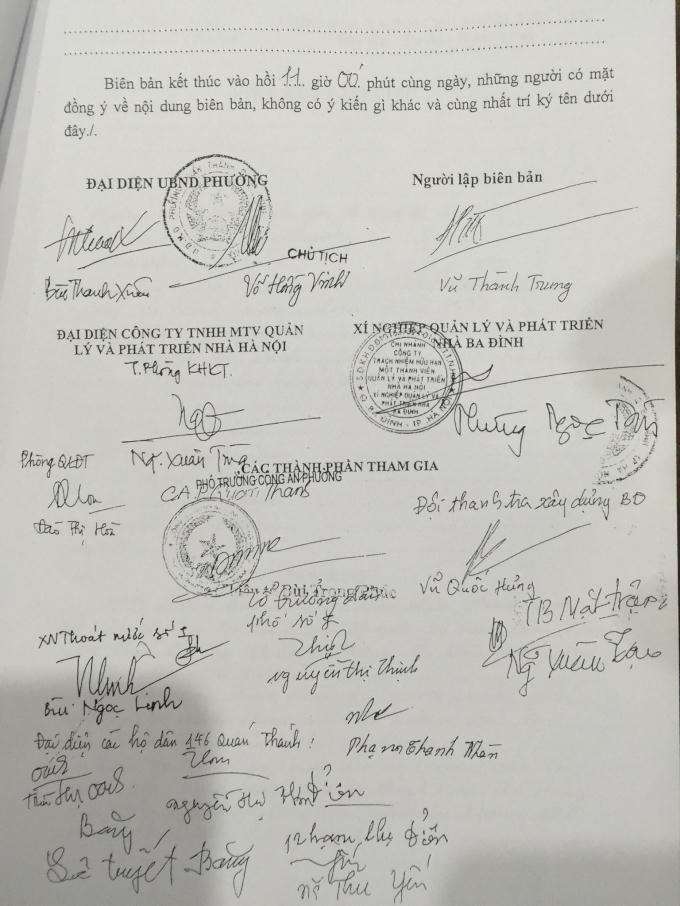 Biên bản kết thúc vào hồi 11 giờ 00 phút cùng ngày, những người có mặt
đồng ý về nội dung biên bản, không có ý kiến gì khác và cùng nhất trí ký tên dưới
đây./.
ĐẠI DIỆN UBND PHƯỜNG
Người lập biên bản
CHỦ TỊCH
Bùi Thanh Xuân
Võ Hồng Vinh
Vũ Thành Trung
ĐẠI DIỆN CÔNG TY TNHH MTV QUẢN
LÝ VÀ PHÁT TRIỂN NHÀ HÀ NỘI
T.Phòng KHKT.
XÍ NGHIỆP QUẢN LÝ VÀ PHÁT TRIỂN
NHÀ BA ĐÌNH
CHI NHÁNH
CÔNG TY
TRÁCH NHIỆM HỮU HẠN
MỘT THÀNH VIÊN
QUẢN LÝ VÀ PHÁT TRIỂN
NHÀ HÀ NỘI
XÍ NGHIỆP QUẢN LÝ VÀ
PHÁT TRIỂN NHÀ
BA ĐÌNH
Phùng Ngọc
Phòng QLĐT
Ng. Xuân
CÁC THÀNH PHẦN THAM GIA
PHÓ TRƯỞNG CÔNG AN PHƯỜNG
Đào Thị Hoà
Đội thanh tra xây dựng BĐ
Bùi Trọng
Vũ Quốc Hưng
Tổ trưởng dân
phố số
TB Mặt trận
XN Thoát nước số 1
Nguyễn Thị Thịnh
Ng Xuân
Bùi Ngọc Linh
Đại diện các hộ dân 146 Quán Thánh:
Phạm Thanh Nhàn
Nguyễn Thị
Phạm Thị
Tuyết Băng
Thu Yến